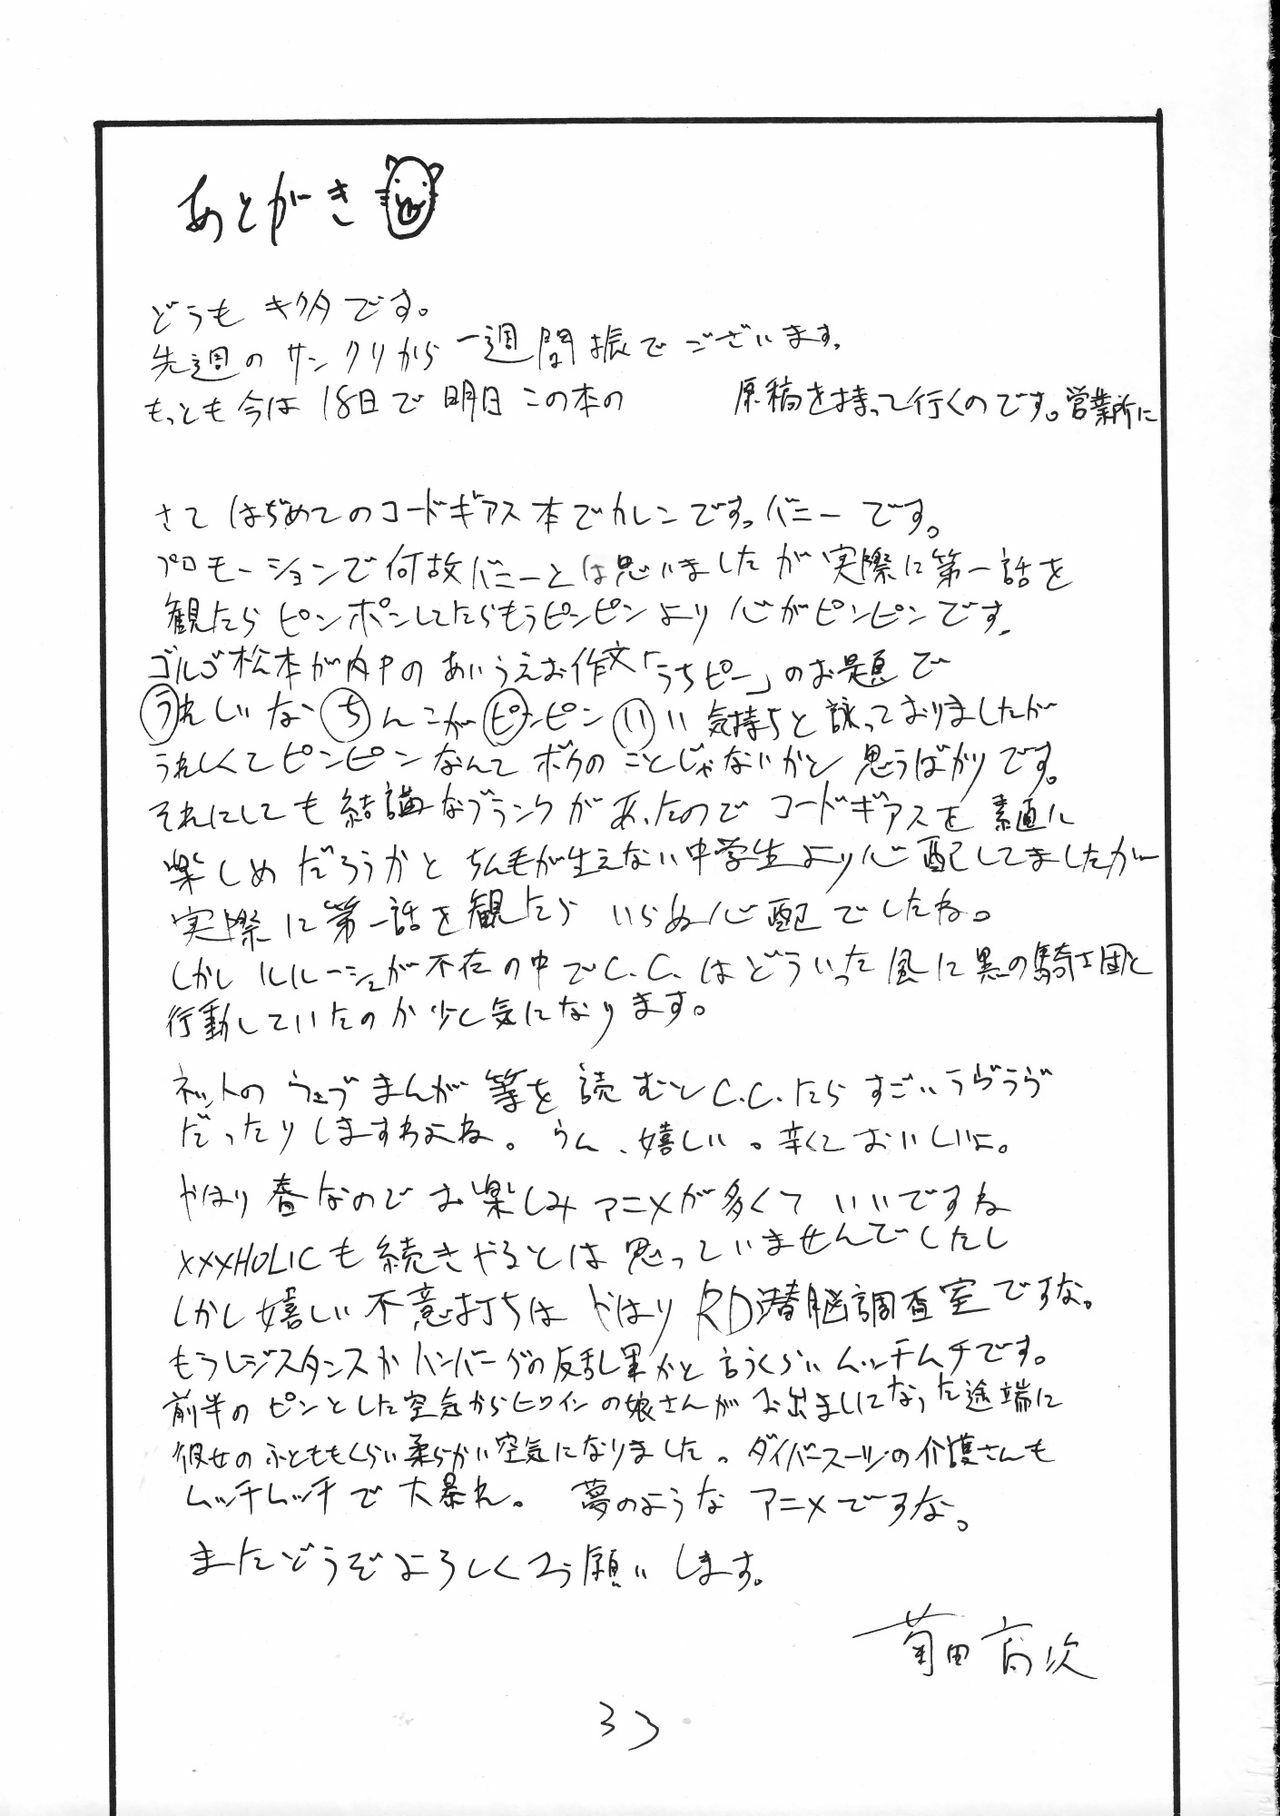 あとがき
どうも キクタです。
先週の サンクリから 一週間振でございます。
もっとも今は 18日で 明日 この本の 原稿を持って行くのです。営業所に
さて はぢめてのコードギアス本でカレンです。バニーです。
プロモーションで何故バニーとは思いましたが実際に第一話を
観たらピンポンしてたらもうピンピンより心がピンピンです。
ゴルゴ松本が内Pの あいうえお作文「うちピー」のお題で
うれしいな ちんこが ピンピン いい 気持ちと詠っておりましたが
うれしくてピンピンなんて ボクのことじゃないかと 思うばかりです。
それにしても結構なブランクがあったので コードギアスを 素直に
楽しめだろうかと ちん毛が生えない中学生より心配してましたが
実際に第一話を観たら いらぬ心配でしたね。
しかしルルーシュが不在の中でC.C.はどういった風に黒の騎士団と
行動していたのか少し気になります。
ネットの ウェブまんが 等を 読むとC.C.たら すごいラヴラヴ
だったりしますわよね。うん、嬉しい。辛くておいしいよ。
やはり春なのでお楽しみアニメが多くて いいですね
xxxHOLICも続きやるとは思っていませんでしたし
しかし嬉しい不意打ちは やはり RD潜脳調査室ですな。
もうレジスタンスかハンバーグの反乱軍かと言うくらいムッチムチです。
前半の ピンとした空気からヒロインの娘さんが お出ましになった途端に
彼女のふとももくらい柔らかい空気になりました。ダイバースーツの介護さんも
ムッチムッチで大暴れ。夢のような アニメですな。
またどうぞよろしくお願いします。
菊田高次
33